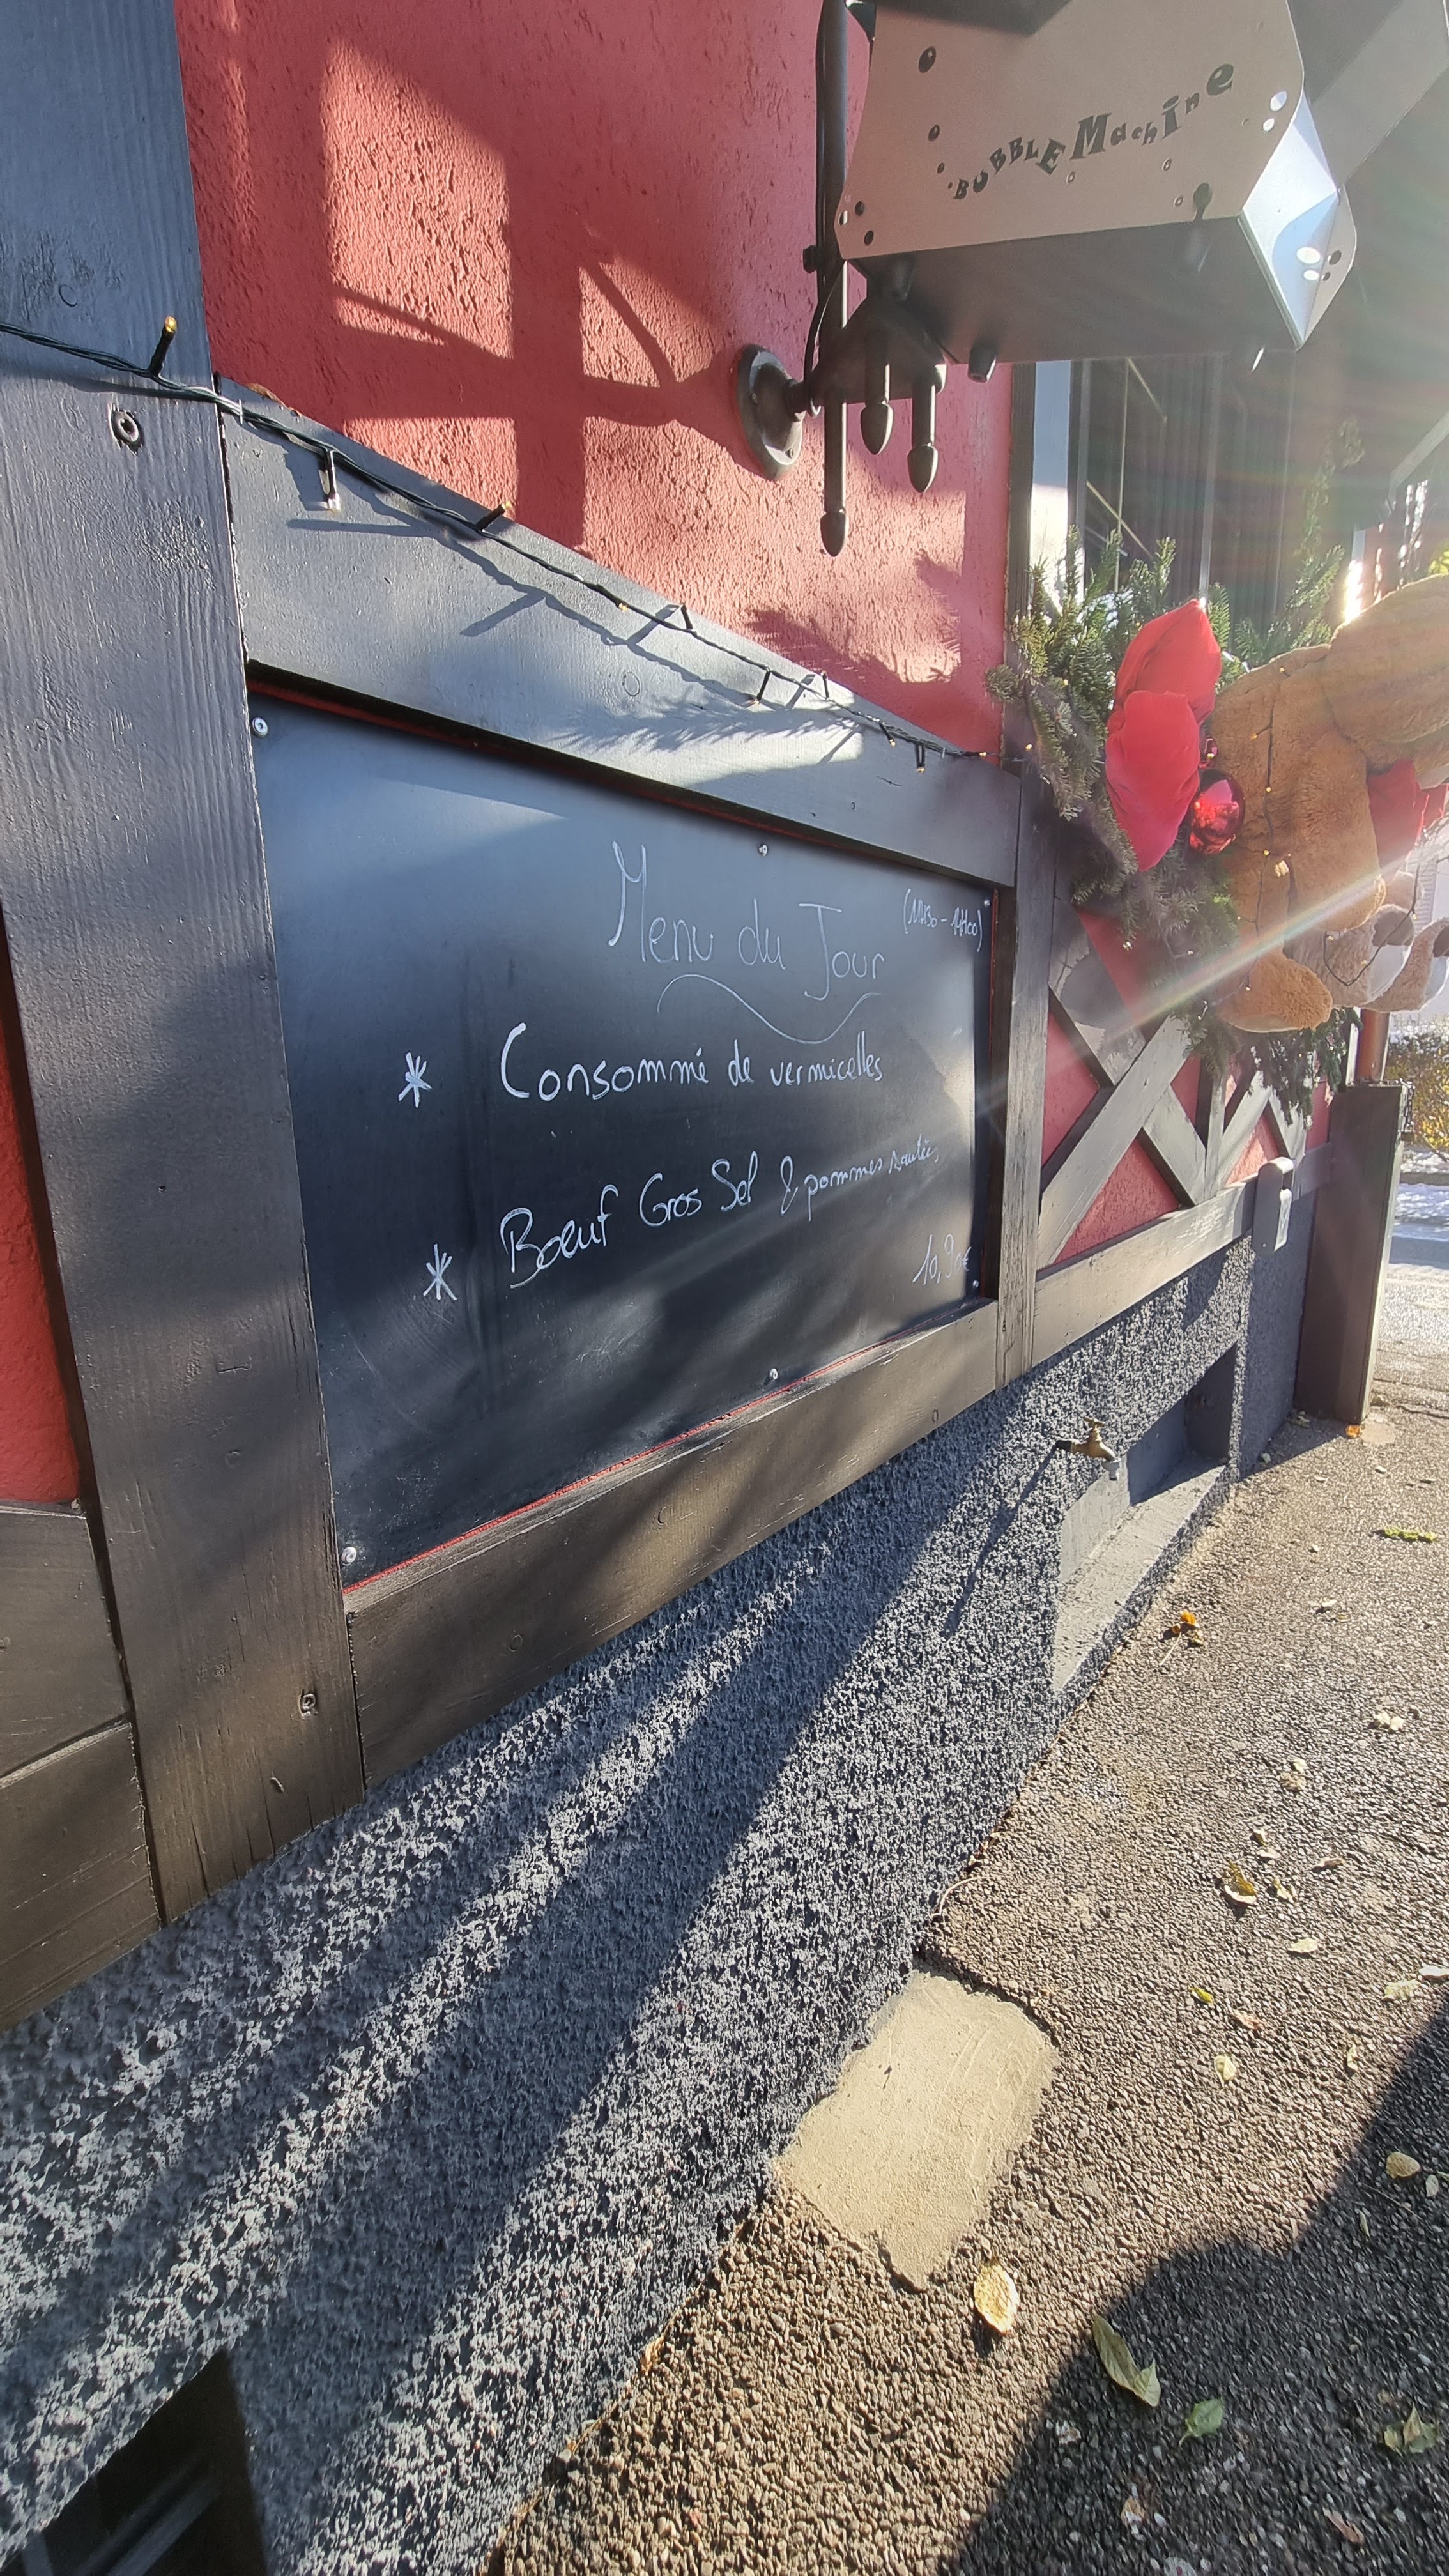 BUBBLE MachinE
Menu du Jour
(11H30 - 14H00)
* Consommé de vermicelles
* Boeuf Gros Sel & pommes sautées
10,90€